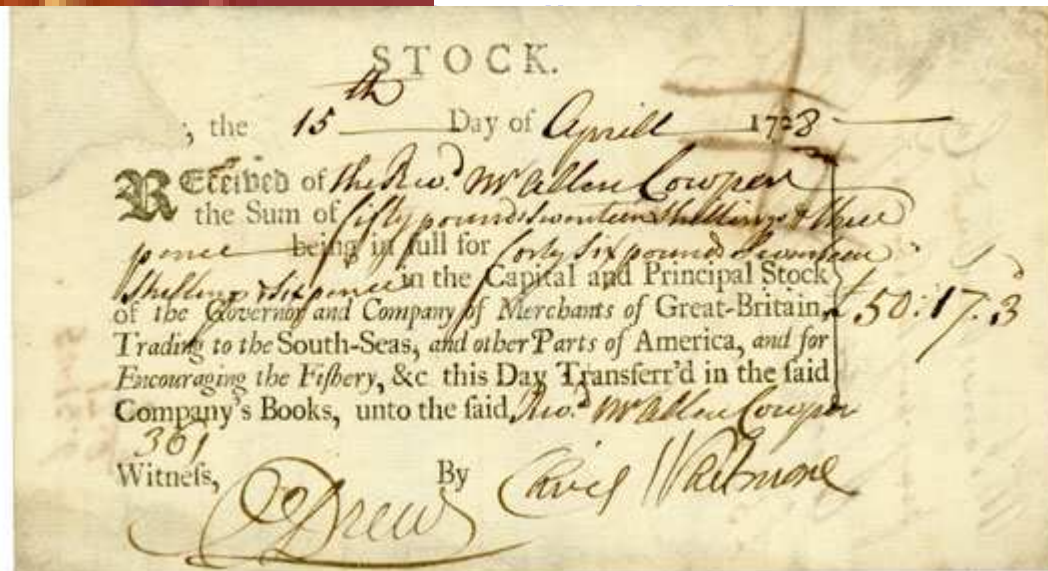 STOCK.
, the 15th Day of Aprill 1728
REceived of the Revd. Mr Allen Cowper
the Sum of fifty pounds Seventeen Shillings & three
pence being in full for forty Six pounds Seventeen
Shillings & Six pence in the Capital and Principal Stock
of the Governor and Company of Merchants of Great-Britain, £50:17:3
Trading to the South-Seas, and other Parts of America, and for
Encouraging the Fiſhery, &c this Day Transferr'd in the ſaid
Company's Books, unto the ſaid Revd. Mr Allen Cowper
361
Witneſs, By
Drew